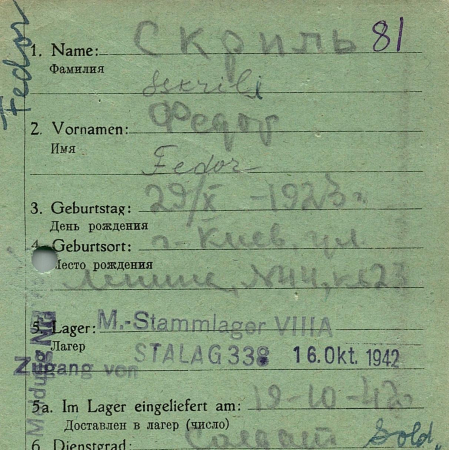 Fedor
1. Name: Скриль 81
Фамилия
Sskrili
2. Vornamen: Федор
Имя
Fedor
3. Geburtstag: 29/X -1923г.
День рождения
4. Geburtsort: г-Киев, ул
Место рождения
Ленина, N44, кв23
5. Lager: M.-Stammlager VIIIA
Лагер
STALAG 338 16. Okt. 1942
Zugang von
5a. Im Lager eingeliefert am: 19-10-42г.
Доставлен в лагер (число)
6. Dienstgrad: Солдат Sold.